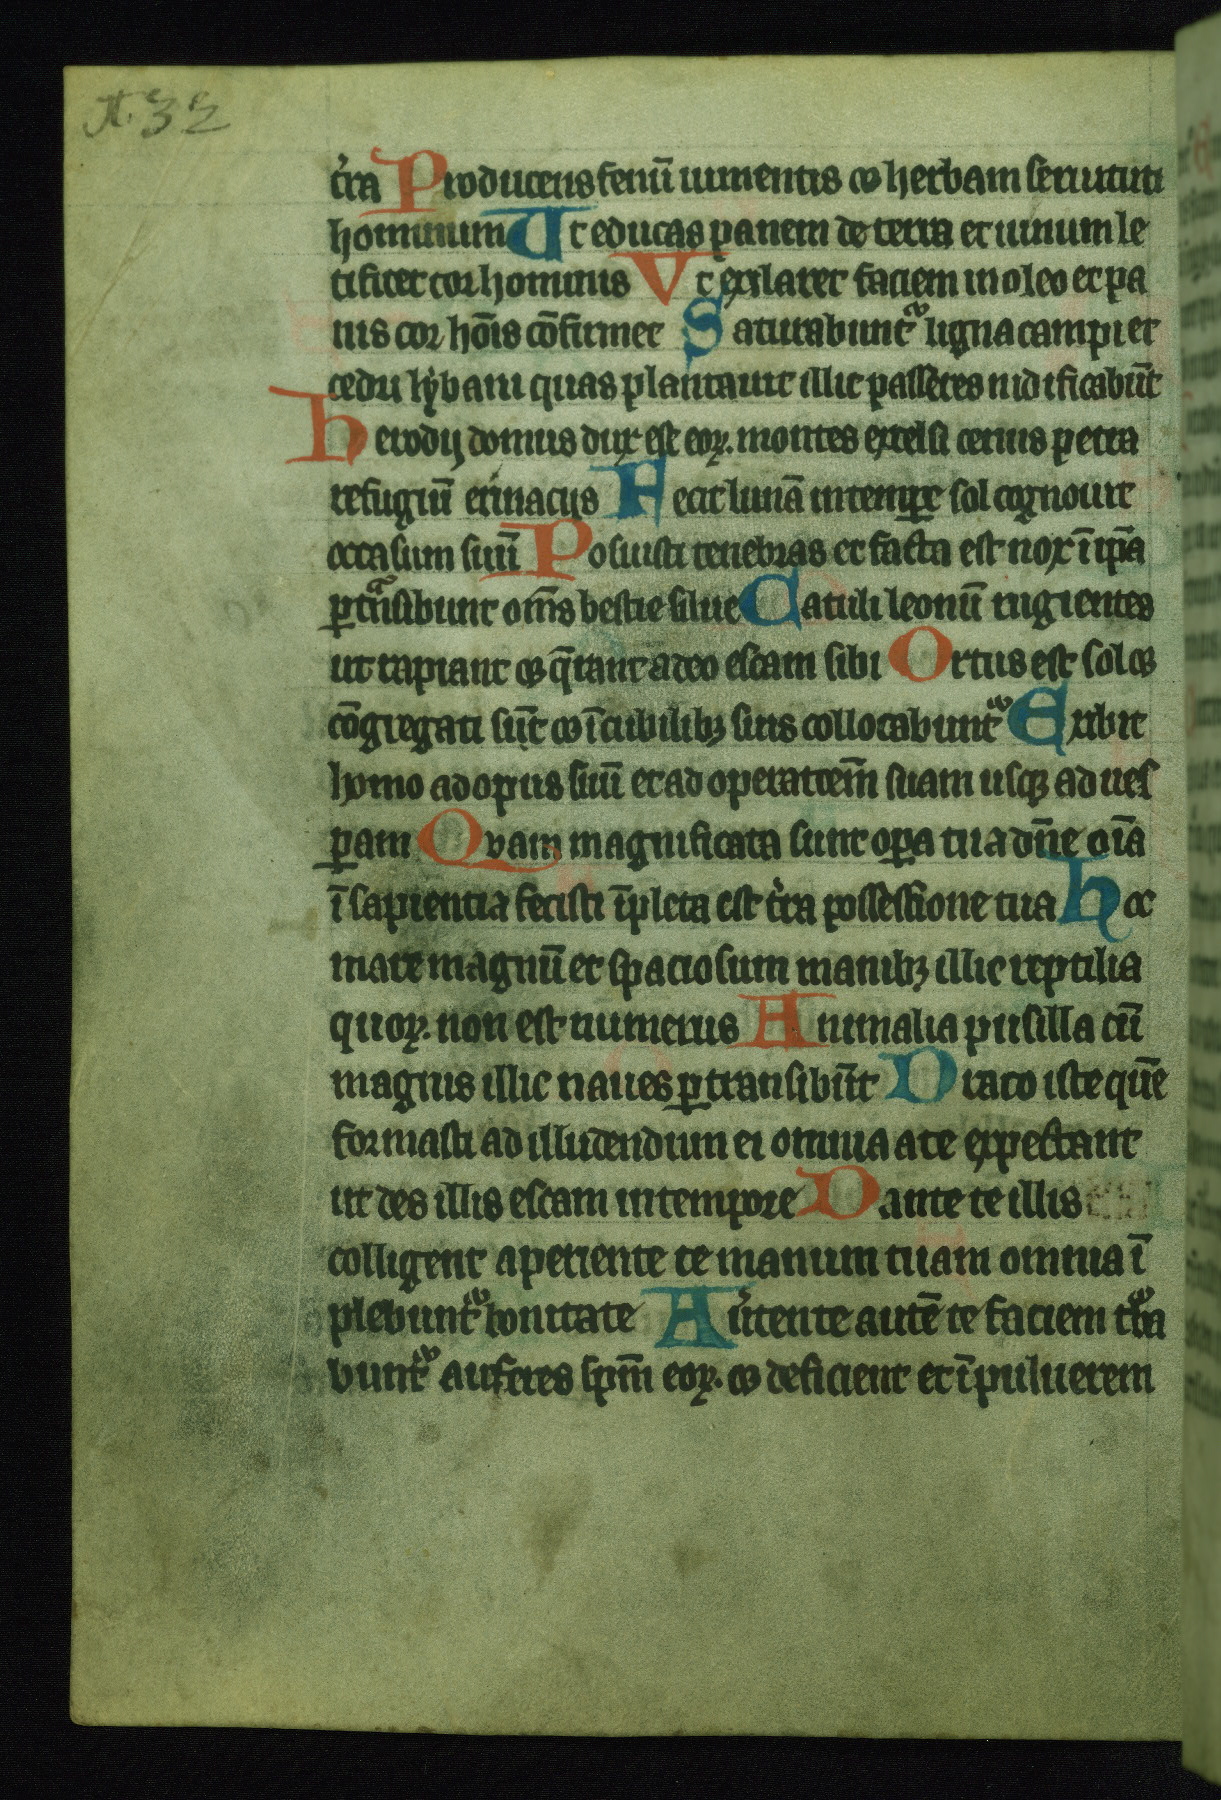 t᷑ra Producens fenū iumentis ⁊ herbam seruituti
hominum Ut educas panem de terra et uinum le
tificet cor hominis Vt exilaret faciem in oleo et pa
nis cor hōis cōfirmet Saturabunt᷑ ligna campi et
cedri lybani quas plantauit illic passeres nidificabūt
herodij domus dux est eoꝝ. montes excelsi ceruis petra
refugiū erinacijs Fecit lunā in tempore sol cognouit
occasum suū Posuisti tenebras et facta est nox ī ip̄a
ꝑtᷓnsibunt om̄s bestie silue Catuli leonū rugientes
ut rapiant ⁊ q̄rant a deo escam sibi Ortus est sol ⁊
cōgregati sūt ⁊ ī cubilibꝫ suis collocabunt᷑ Exibit
homo ad opus suū et ad operatcēm suam usqꝫ ad ues
ꝑam Qvam magnificata sunt oꝑa tua dn̄e oīa
ī sapientia fecisti īpleta est t᷑ra possessione tua hoc
mare magnū et spaciosum manibꝫ illic reptilia
quoꝝ. non est numerus Animalia pusilla cū
magnis illic naues ꝑtransibūt Draco iste quē
formasti ad illudendum ei omnia a te expectant
ut des illis escam in tempore Dante te illis
colligent aperiente te manum tuam omnia ī
plebunt᷑ bonitate Au᷑tente autē te faciem t᷑ba
bunt᷑ auferes sp̄m eoꝝ. ⁊ deficient et ī puluerem